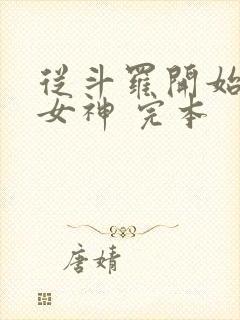 從斗羅開始
女神 完本
唐婧